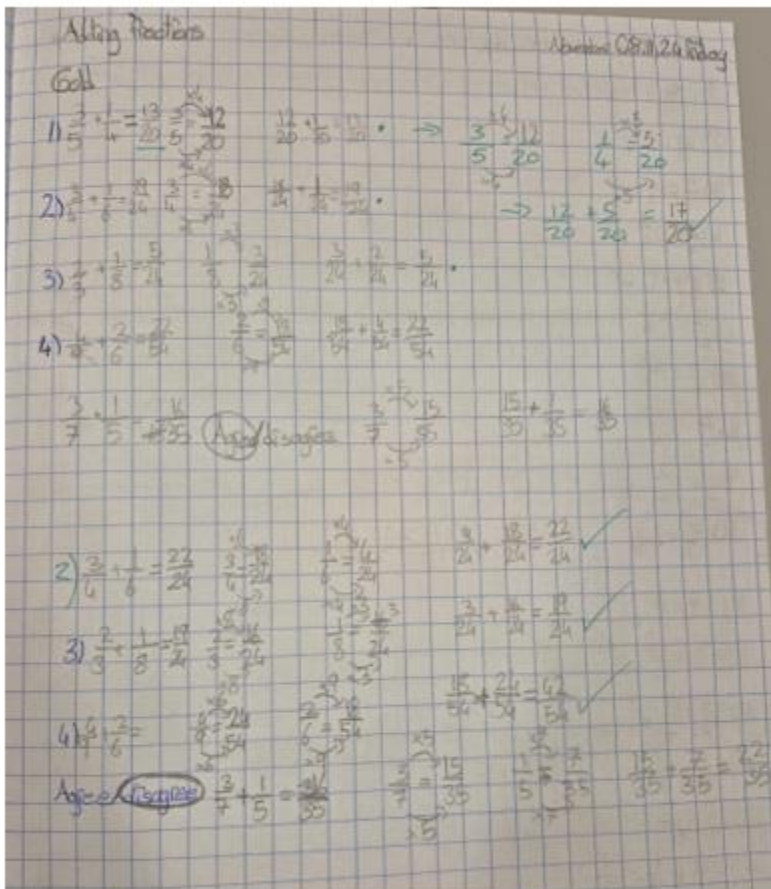 Adding Fractions
08.11.24 Friday
Gold
1) 3/5 + 1/4 = 13/20 3/5 = 12/20 12/20 + 1/20 = 13/20 . → 3/5 = 12/20 1/4 = 5/20
→ 12/20 + 5/20 = 17/20 ✓
2) 3/4 + 1/6 = 19/24 3/4 = 18/24 18/24 + 1/24 = 19/24 .
3) + 1/8 = 5/24 1/8 3/24 3/24 + 2/24 = 5/24 .
4) + 2/6 = 22/54 2/6 = 18/54 18/54 + 4/54 = 22/54
3/7 + 1/5 = 16/35 Agree/disagree 3/7 15/35 15/35 + 1/35 = 16/35
2) 3/4 + 1/6 = 22/24 3/4 = 18/24 1/6 = 4/24 4/24 + 18/24 = 22/24 ✓
3) 2/3 + 1/8 = 19/24 2/3 = 16/24 1/8 = 3/24 3/24 + 16/24 = 19/24 ✓
4) 4/9 + 2/6 = 24/54 2/6 = 18/54 18/54 + 24/54 = 42/54 ✓
Agree/disagree 3/7 + 1/5 = 3/7 = 15/35 1/5 = 7/35 15/35 + 7/35 = 22/35